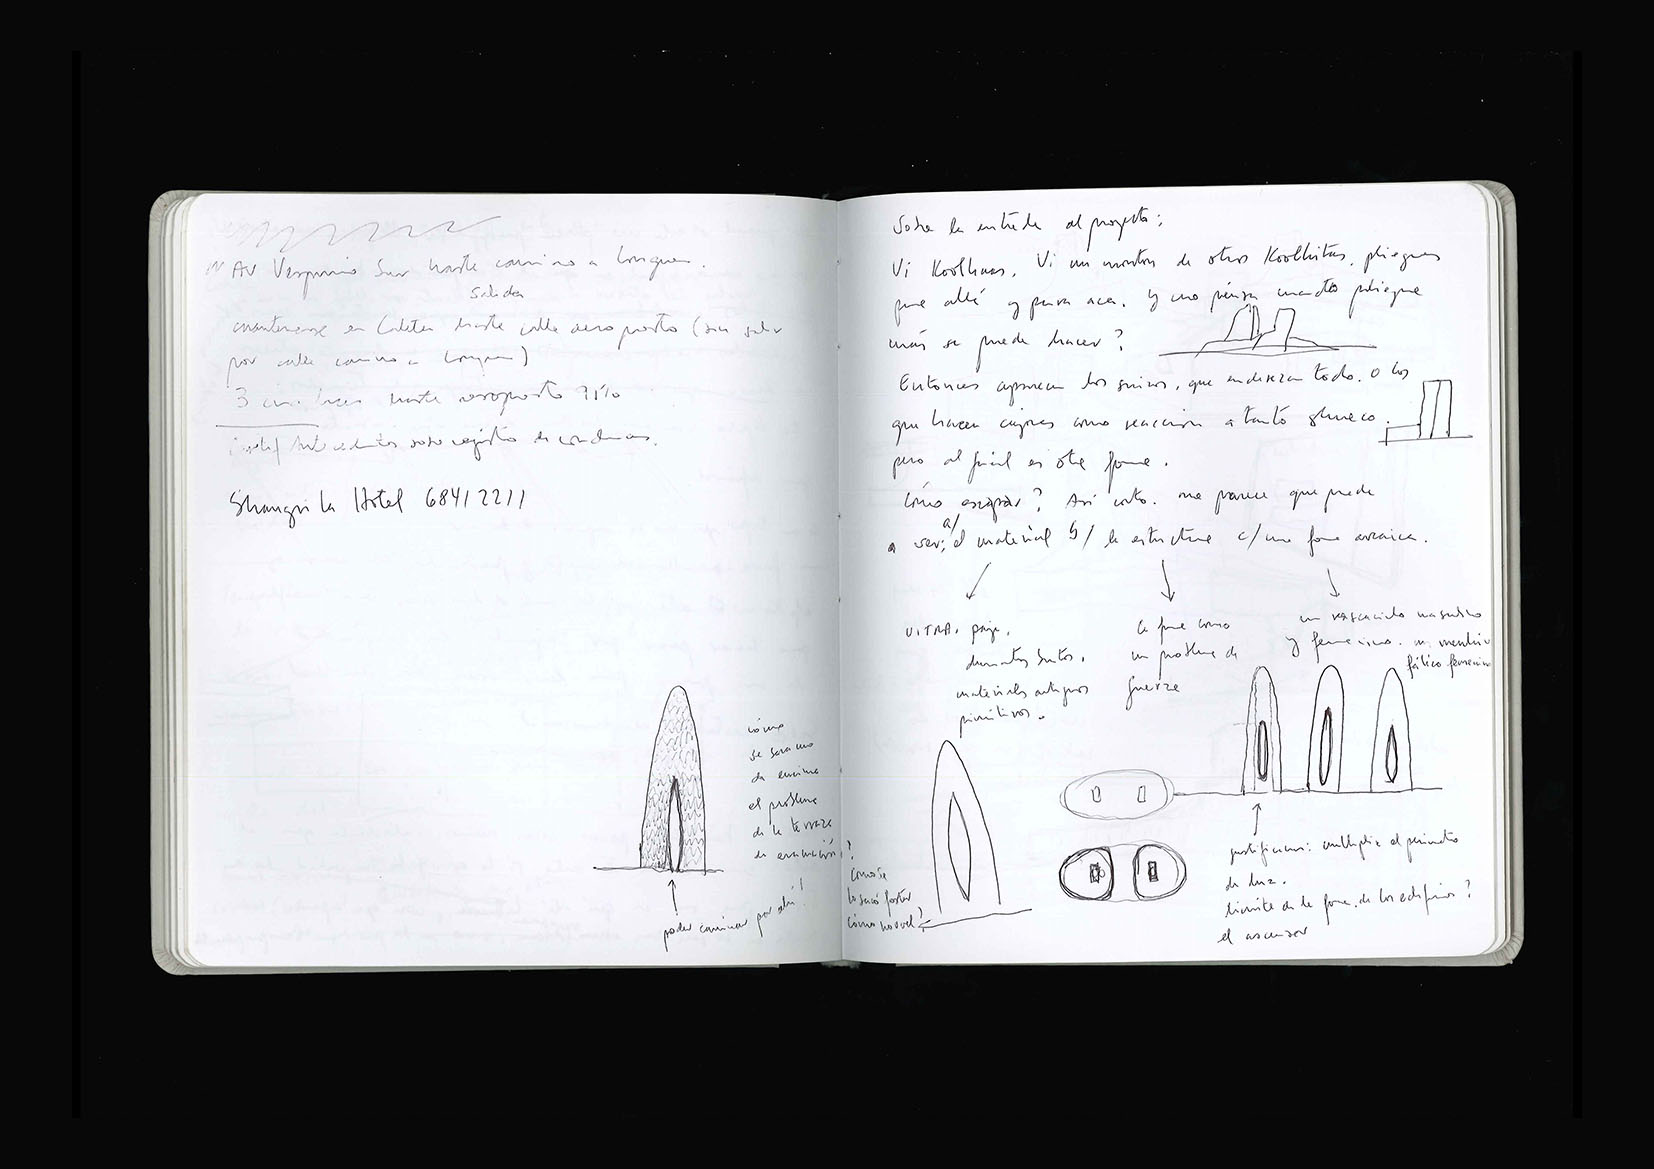 Av Vespucio Sur hasta camino a Lonquén.
salida
mantenerse en caletera hasta calle aeropuerto (sin salir
por calle camino a Lonquén)
3 hasta aeropuerto
Antecedentes sobre registro de
Shangri La Hotel 68412211
cómo
se saca uno
de encima
el problema
de la terraza
de evacuación?
poder caminar por ahí!
Sobre la entrada al proyecto:
Vi Koolhaas. Vi un montón de otros Koolhitas, pliegues
para allá y para acá. Y uno piensa cuánto pliegue
más se puede hacer?
Entonces aparecen los suizos, que enderezan todo. O los
que hacen cajones como reacción a tanto
pero al final es otra forma.
Cómo escapar? Así corto. me parece que puede
ser; a/ el material b/ la estructura c/ una forma arcaica.
VITRA. paja.
materiales antiguos
primitivos.
la forma como
un problema de
fuerza
un rascacielo masculino
y femenino. un menhir
fálico femenino
cómo se
lo sacó foster
cómo nouvel?
justificación: multiplica el perímetro
de luz.
límite de la forma de los edificios?
el ascensor